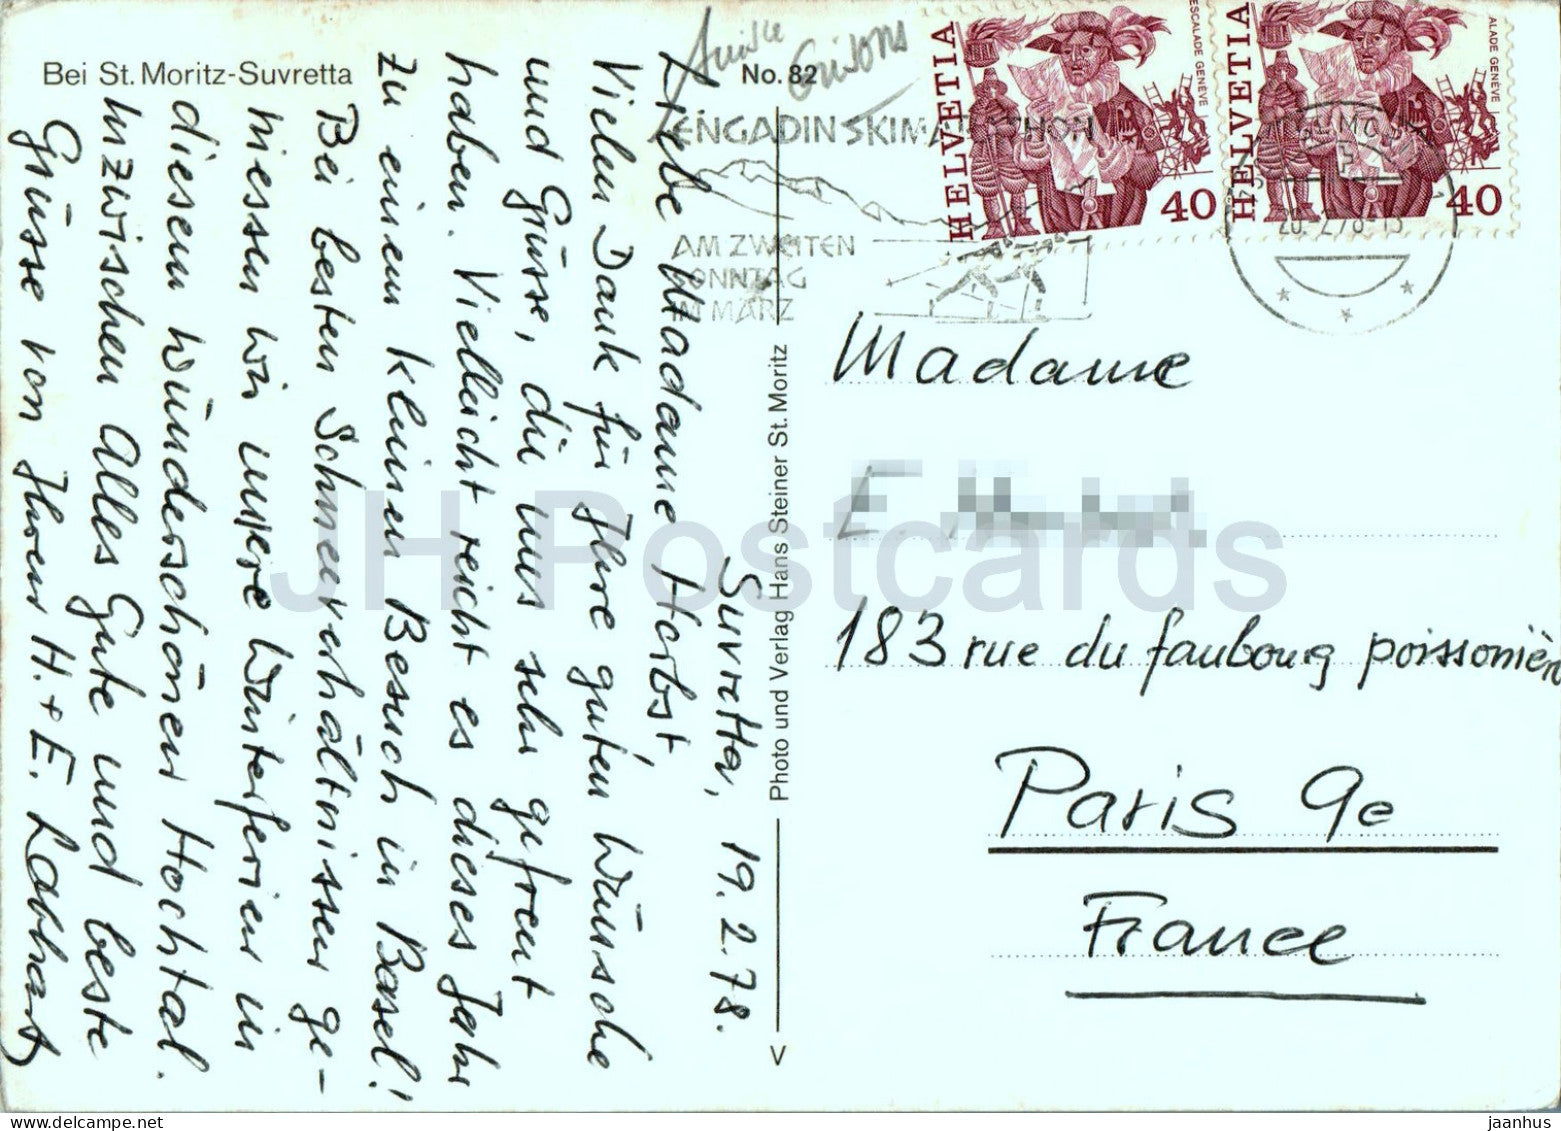 Bei St. Moritz-Suvretta
No. 82
Suisse
Grisons
ENGADIN SKIMARATHON
AM ZWEITEN
SONNTAG
IM MÄRZ
HELVETIA
ESCALADE GENEVE
40
HELVETIA
ALADE GENEVE
40
20.2.78-15
Suvretta, 19.2.78.
Liebe Madame Herbst,
Vielen Dank für Ihre guten Wünsche
und Grüsse, die uns sehr gefreut
haben. Vielleicht reicht es dieses Jahr
zu einem kleinen Besuch in Basel!
Bei besten Schneeverhältnissen ge-
niessen wir unsere Winterferien in
diesem wunderschönen Hochtal.
Inzwischen Alles Gute und beste
Grüsse von Ihren H. + E. Labhart
Photo und Verlag Hans Steiner St. Moritz
V
Madame
E.
183 rue du faubourg poissonièr
Paris 9e
France
JH Postcards
jaanhus